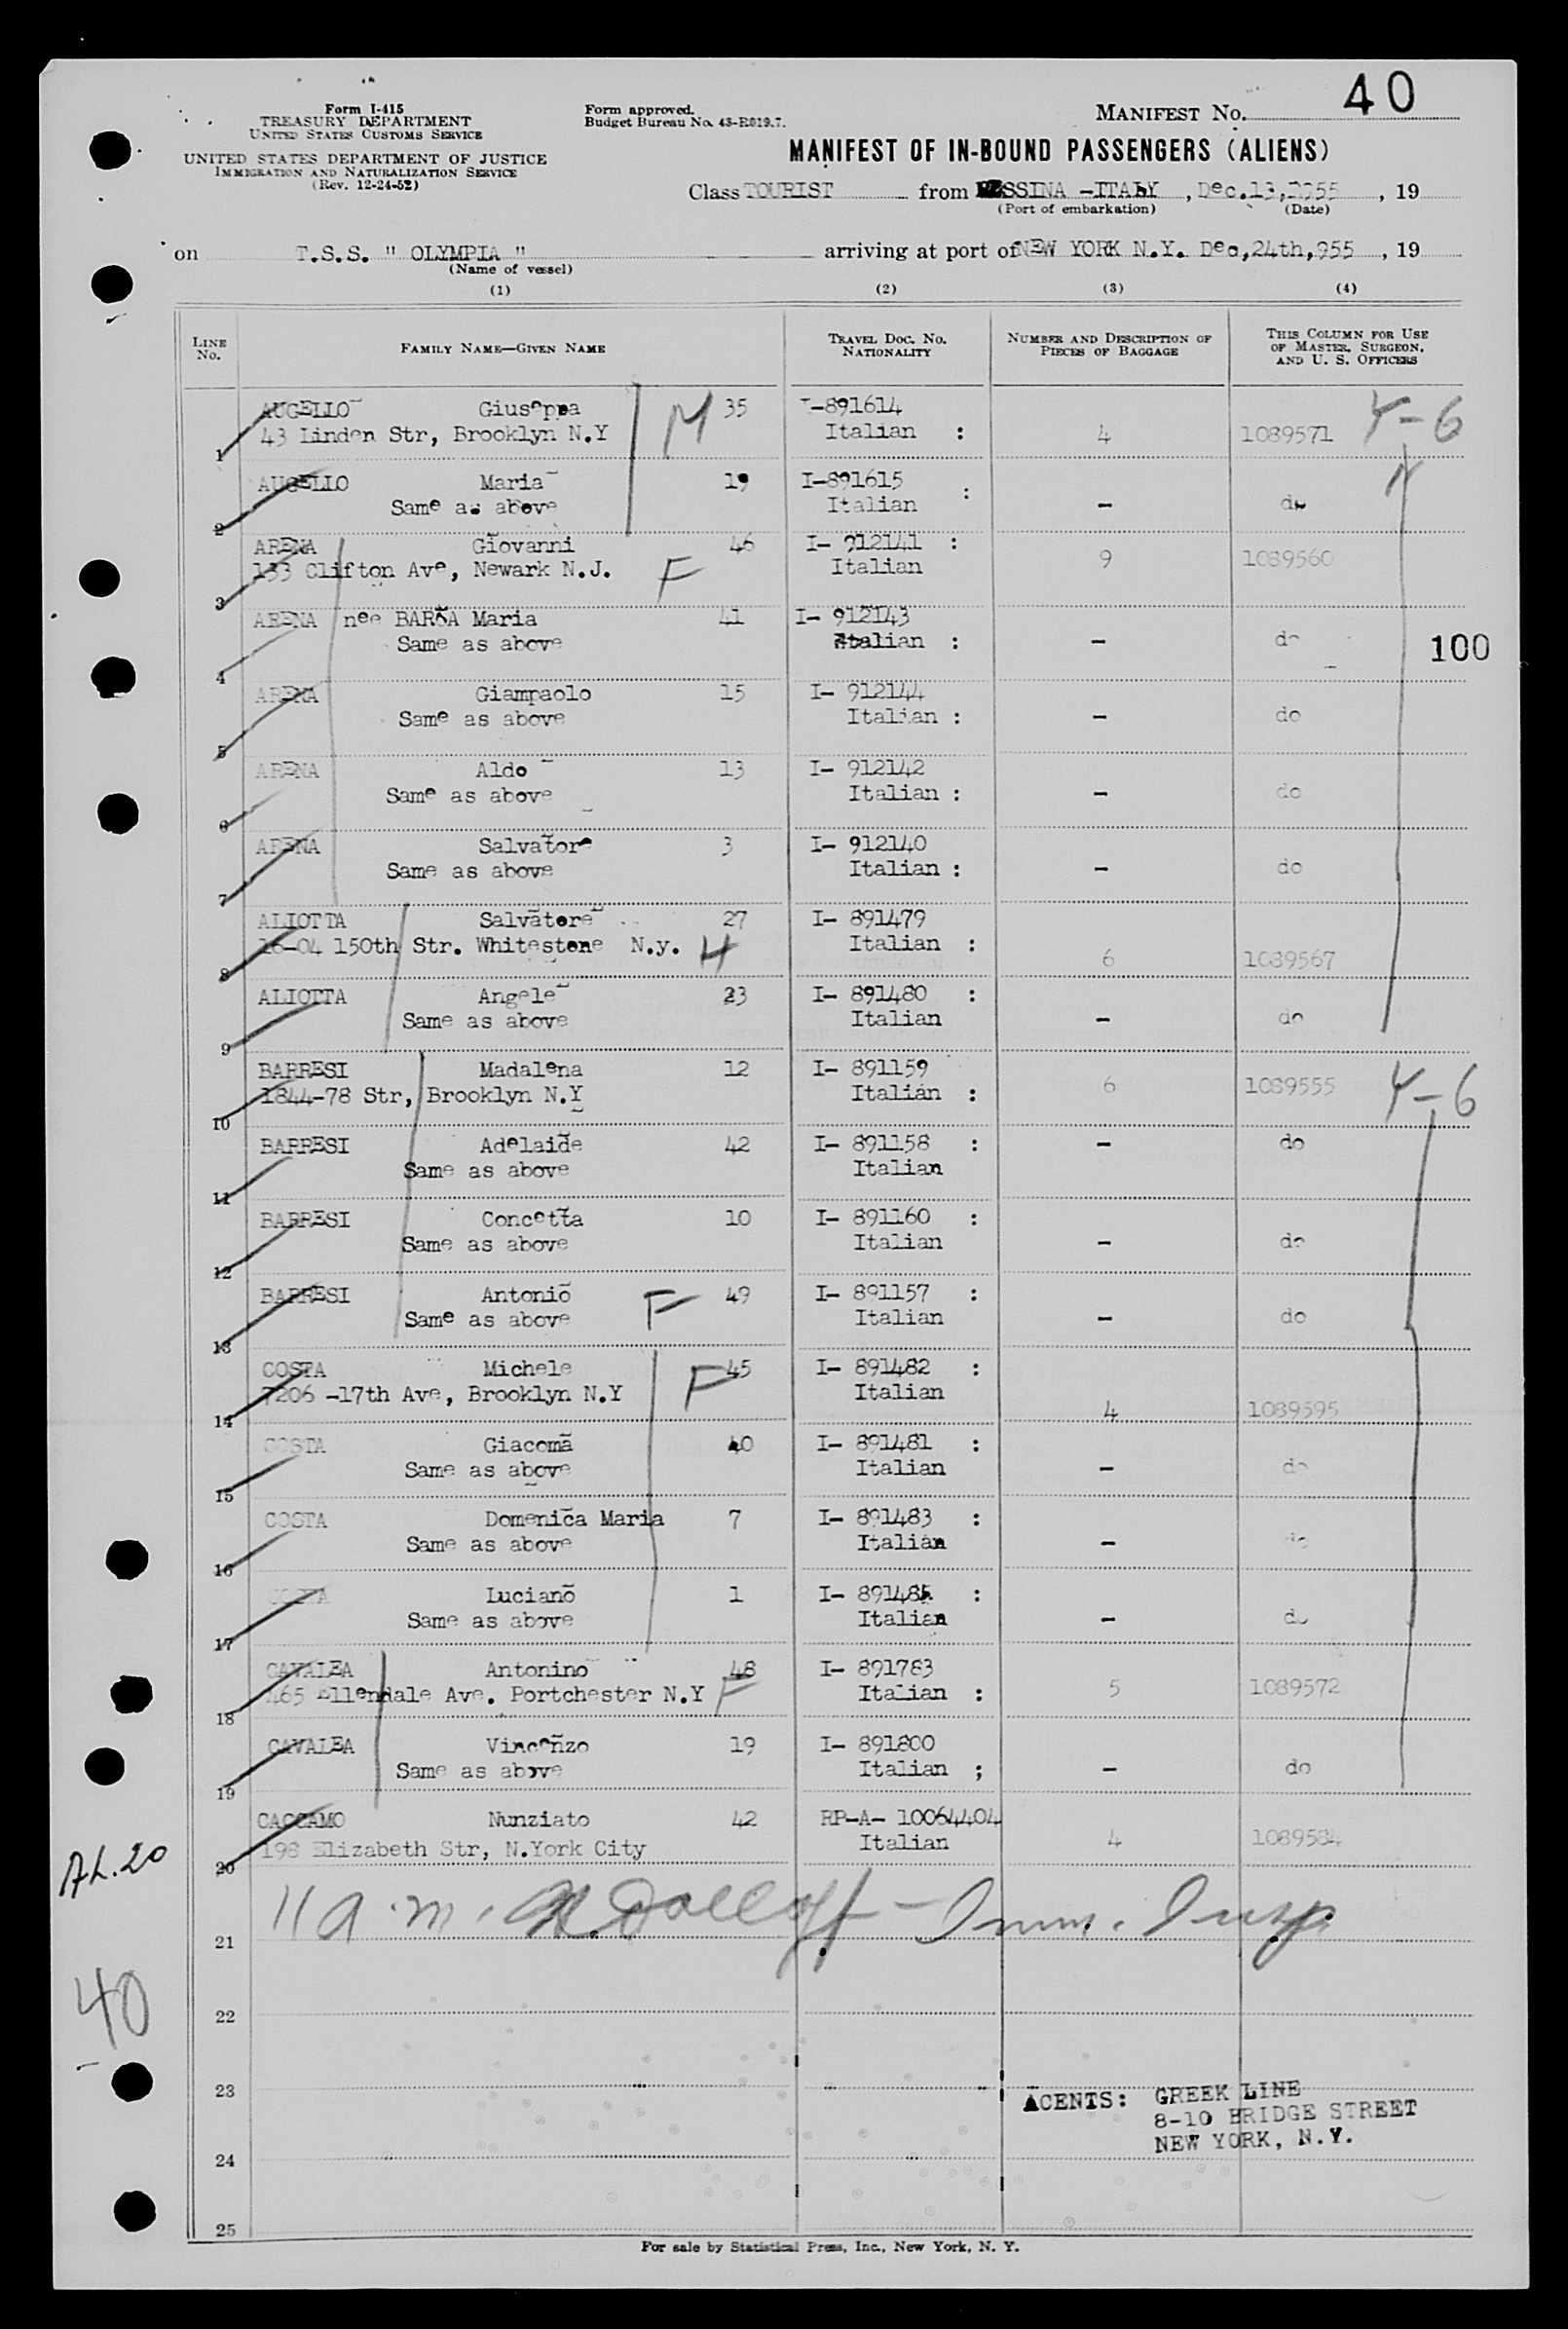 40
Form I-415
TREASURY DEPARTMENT
UNITED STATES CUSTOMS SERVICE
UNITED STATES DEPARTMENT OF JUSTICE
IMMIGRATION AND NATURALIZATION SERVICE
(Rev. 12-24-52)
Form approved.
Budget Bureau No. 43-R019.7.
MANIFEST No.
MANIFEST OF IN-BOUND PASSENGERS (ALIENS)
Class TOURIST from MESSINA -ITALY , Dec.13,1955 , 19
(Port of embarkation) (Date)
on T.S.S. " OLYMPIA " arriving at port of NEW YORK N.Y. Dec,24th,955 , 19
(Name of vessel)
(1) (2) (3) (4)
LINE No. FAMILY NAME—GIVEN NAME TRAVEL DOC. NO. NATIONALITY NUMBER AND DESCRIPTION OF PIECES OF BAGGAGE THIS COLUMN FOR USE OF MASTER, SURGEON, AND U. S. OFFICERS
AUGELLO Giuseppa M 35 I-891614 Y-6
1 43 Linden Str, Brooklyn N.Y Italian : 4 1089571
AUGELLO Maria 19 I-891615 :
2 Same as above Italian - do
ARENA Giovanni 46 I- 912141 :
3 133 Clifton Ave, Newark N.J. F Italian 9 1089560
ARENA nee BARSA Maria 41 I- 912143
4 Same as above Italian : - do 100
ARENA Giampaolo 15 I- 912144
5 Same as above Italian : - do
ARENA Aldo 13 I- 912142
6 Same as above Italian : - do
ARENA Salvatore 3 I- 912140
7 Same as above Italian : - do
ALIOTTA Salvatore 27 I- 891479
8 16-04 150th Str. Whitestone N.y. H Italian : 6 1089567
ALIOTTA Angele 23 I- 891480 :
9 Same as above Italian - do
BARRESI Madalena 12 I- 891159
10 1844-78 Str, Brooklyn N.Y Italian : 6 1089555 Y-6
BARRESI Adelaide 42 I- 891158 : - do
11 Same as above Italian
BARRESI Concetta 10 I- 891160 :
12 Same as above Italian - do
BARRESI Antonio F 49 I- 891157 :
13 Same as above Italian - do
COSTA Michele F 45 I- 891482 :
14 7206 -17th Ave, Brooklyn N.Y Italian 4 1089595
COSTA Giacoma 40 I- 891481 :
15 Same as above Italian - do
COSTA Domenica Maria 7 I- 891483 :
16 Same as above Italian - do
COSTA Luciano 1 I- :
17 Same as above Italian - do
CAVALEA Antonino 48 I- 891783
18 465 Ellendale Ave. Portchester N.Y F Italian : 5 1089572
CAVALEA Vincenzo 19 I- 891800
19 Same as above Italian ; - do
CACCAMO Nunziato 42 RP-A- 10064404
20 198 Elizabeth Str, N.York City Italian 4 1089584
AL.20
11 a.m. Imm. Insp.
21
40
22
23
AGENTS: GREEK LINE
8-10 BRIDGE STREET
NEW YORK, N.Y.
24
25
For sale by Statistical Press, Inc., New York, N. Y.